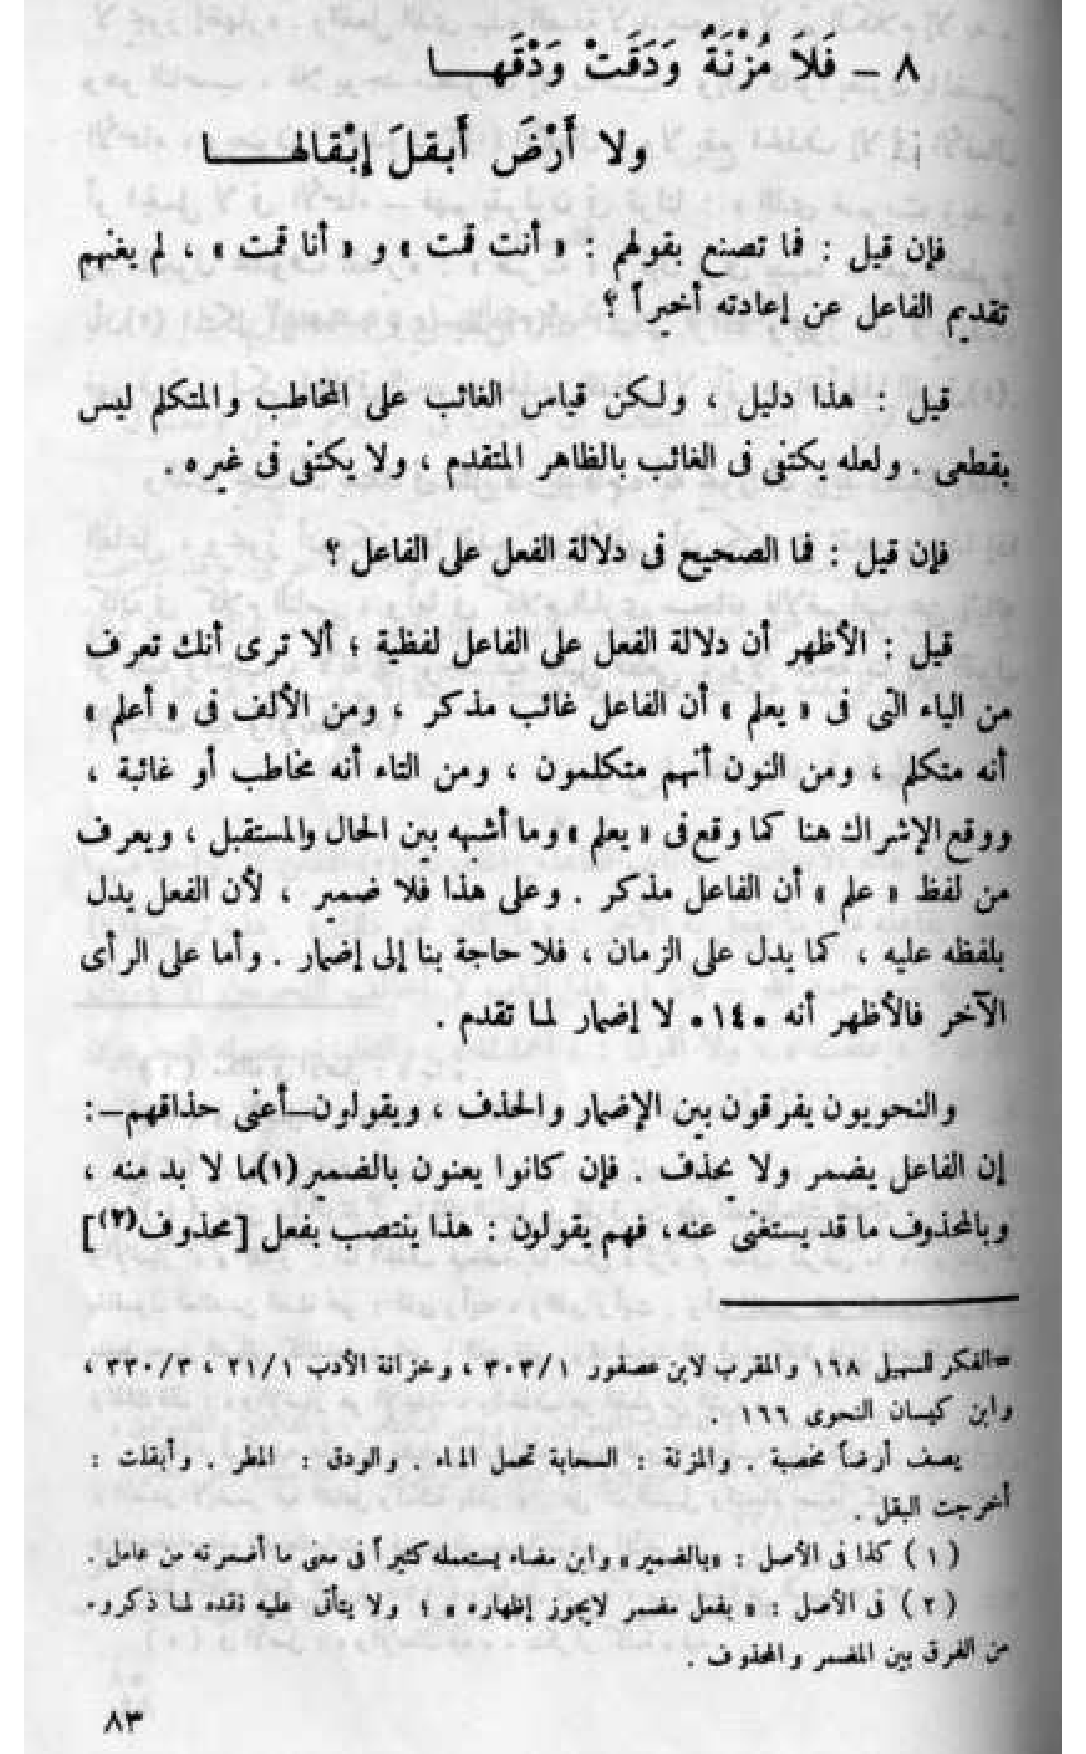 ٨ – فَلاَ مُزْنَةٌ وَدَقَتْ وَدْقَهـــا
ولا أَرْضَ أَبقلَ إِبْقالهـــا
فإن قيل : فما تصنع بقولهم : « أنت قمت » و « أنا قمت » ، لم يغنهم
تقديم الفاعل عن إعادته أخيراً ؟
قيل : هذا دليل ، ولكن قياس الغائب على المخاطب والمتكلم ليس
بقطعى . ولعله يكتفى فى الغائب بالظاهر المتقدم ، ولا يكتفى فى غيره .
فإن قيل : فما الصحيح فى دلالة الفعل على الفاعل ؟
قيل : الأظهر أن دلالة الفعل على الفاعل لفظية ؛ ألا ترى أنك تعرف
من الياء التى فى « يعلم » أن الفاعل غائب مذكر ، ومن الألف فى « أعلم »
أنه متكلم ، ومن النون أنهم متكلمون ، ومن التاء أنه مخاطب أو غائبة ،
ووقع الإشراك هنا كما وقع فى « يعلم » وما أشبهه بين الحال والمستقبل ، ويعرف
من لفظ « علم » أن الفاعل مذكر . وعلى هذا فلا ضمير ، لأن الفعل يدل
بلفظه عليه ، كما يدل على الزمان ، فلا حاجة بنا إلى إضمار . وأما على الرأى
الآخر فالأظهر أنه •١٤• لا إضمار لما تقدم .
والنحويون يفرقون بين الإضمار والحذف ، ويقولون–أعنى حذاقهم–:
إن الفاعل يضمر ولا يحذف . فإن كانوا يعنون بالضمير(١)ما لا بد منه ،
وبالمحذوف ما قد يستغنى عنه، فهم يقولون : هذا ينتصب بفعل [محذوف(٢)]
=الفكر للسهيلى ١٦٨ والمقرب لابن عصفور ٣٠٣/١ ، وخزانة الأدب ٢١/١ ، ٣٣٠/٣ ،
وابن كيسان النحوى ١٦٦ .
يصف أرضاً مخصبة . والمزنة : السحابة تحمل الماء . والودق : المطر . وأبقلت :
أخرجت البقل .
(١) كذا فى الأصل : «بالضمير» وابن مضاء يستعمله كثيراً فى معنى ما أضمرته من عامل .
(٢) فى الأصل : « بفعل مضمر لايجوز إظهاره » ؛ ولا يتأتى عليه نقده لما ذكروه
من الفرق بين المضمر والمحذوف .
٨٣